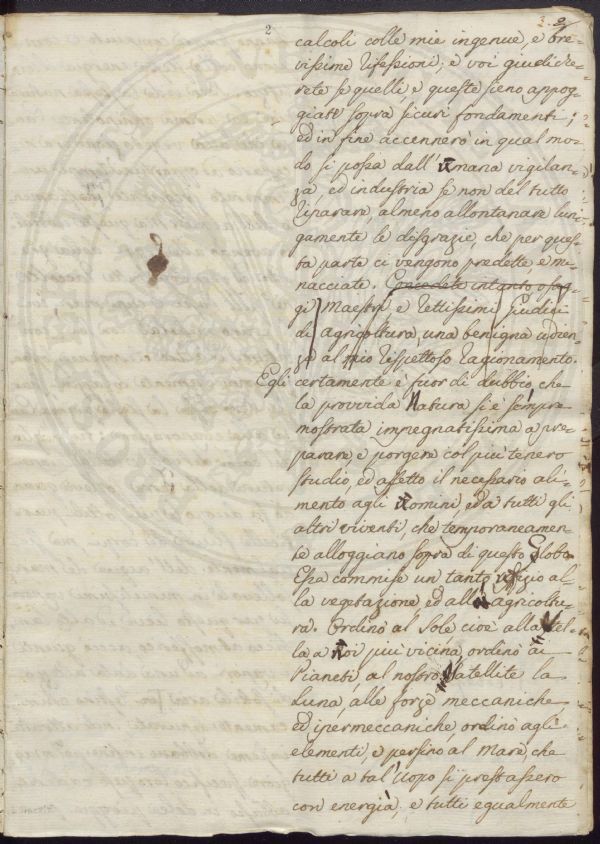 2
calcoli colle mie ingenue, e bre-
vissime rifessioni; e voi giudiche-
rete se quelli, e queste sieno appog-
giate sopra sicuri fondamenti;
ed in fine accennerò in qual mo-
do si possa dall'umana vigilan-
za, ed industria se non del tutto
riparare, almeno allontanare lun-
gamente le disgrazie, che per ques-
ta parte ci vengono predette, e mi-
nacciate. Concedete intanto o sag-
gi Maestri, e rettissimi Giudici
di agricoltura, una benigna udien-
za al mio rispettoso ragionamento.
Egli certamente è fuor di dubbio, che
la provvida Natura si è sempre
mostrata impegnatissima a pre-
parare, e porgere col più tenero
studio, ed affetto il necessario ali-
mento agli uomini, ed a tutti gli
altri viventi, che temporaneamen-
te alloggiano sopra di questo Globo.
Essa commise un tanto uffizio al-
la vegetazione ed all' agricoltu-
ra. Ordinò al Sole cioè alla Stel-
la a Noi più vicina, ordinò ai
Pianeti, al nostro Satellite la
Luna, alle forze meccaniche
ed ipermeccaniche, ordinò agli
elementi, e persino al Mare, che
tutti a tal'uopo si prestassero
con energia, e tutti egualmente